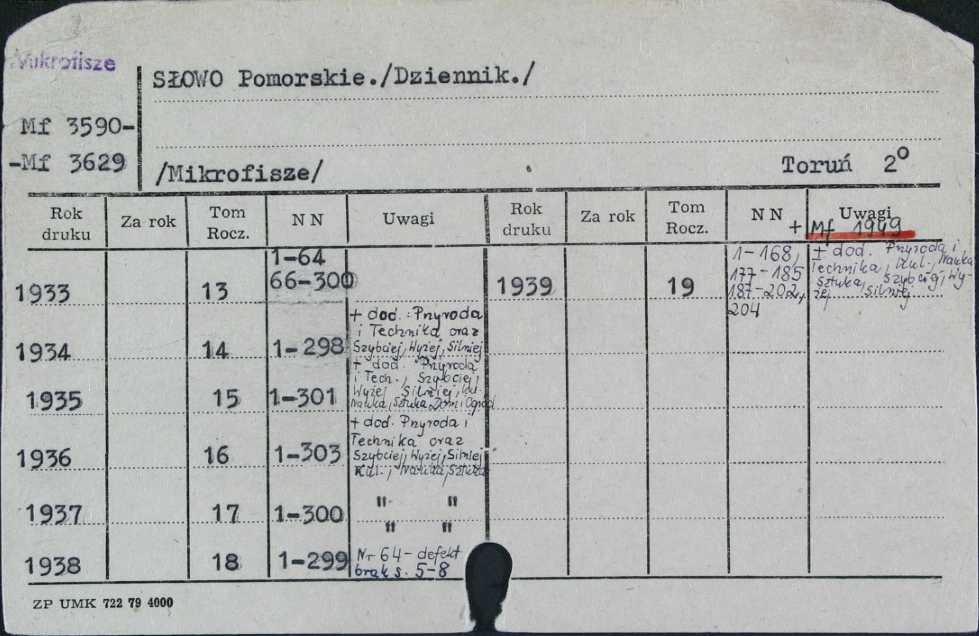 Mikrofisze
SŁOWO Pomorskie./Dziennik./
Mf 3590-
-Mf 3629
/Mikrofisze/ Toruń 2°
Rok druku Za rok Tom Rocz. N N Uwagi Rok druku Za rok Tom Rocz. N N Uwagi
+ Mf 1949
1933 13 1-64
66-300
1939 19 1-168,
177-185
187-202,
204
+ dod. Przyroda i
Technika, Kul., Nauka
Sztuka, Szybciej, Wy-
żej, Silniej
1934 14 1-298
+ dod.: Przyroda
i Technika oraz
Szybciej, Wyżej, Silniej
1935 15 1-301
+ dod. Przyroda
i Tech., Szybciej,
Wyżej Silniej, Kul.
Nauka, Sztuka Dom i Ogród
1936 16 1-303
+ dod. Przyroda i
Technika oraz
Szybciej, Wyżej, Silniej
Kul., Nauka, Sztuka
1937 17 1-300 " "
" "
1938 18 1-299
Nr 64 - defekt
brak s. 5-8
ZP UMK 722 79 4000